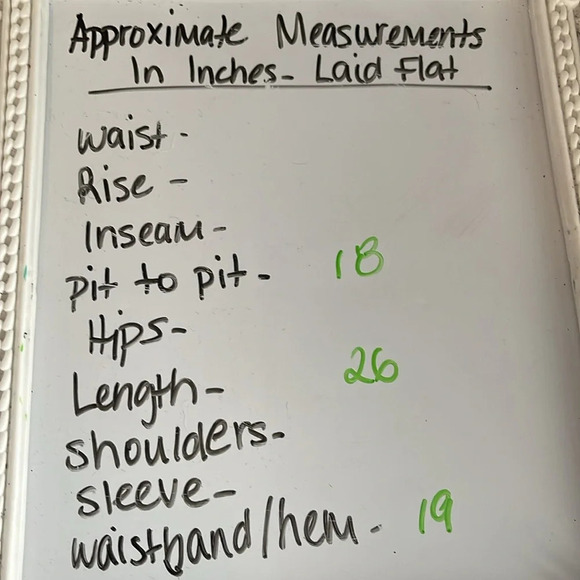 Approximate Measurements
In Inches- Laid Flat
waist -
Rise -
Inseam -
pit to pit - 18
Hips -
Length - 26
shoulders -
sleeve -
waistband/hem - 19